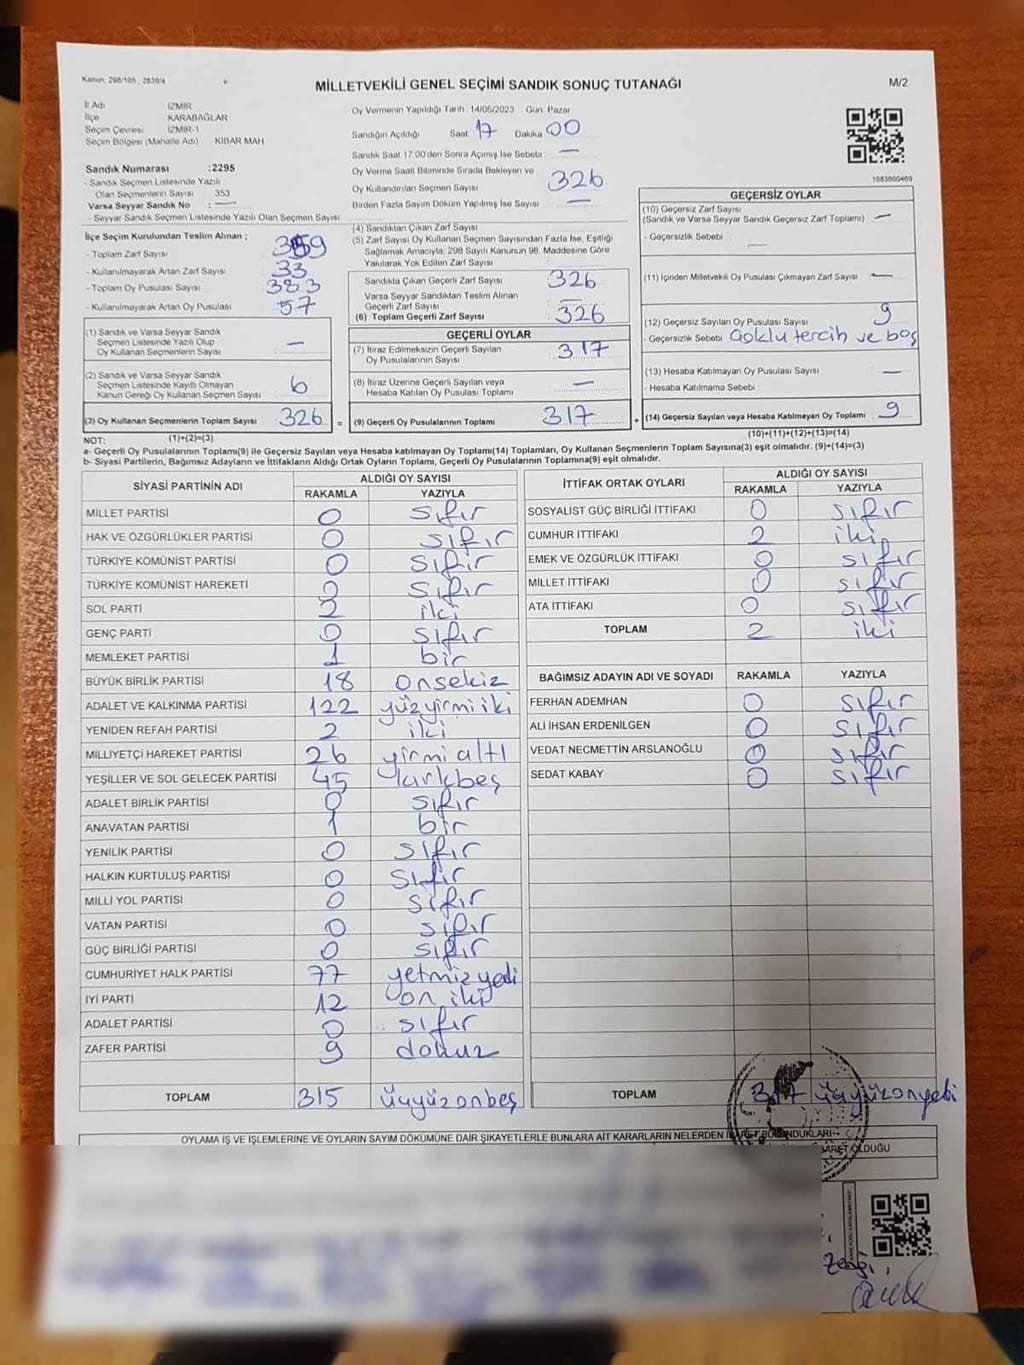 Kanun: 298/105 , 2839/4
MİLLETVEKİLİ GENEL SEÇİMİ SANDIK SONUÇ TUTANAĞI
M/2
İl Adı : İZMİR
İlçe : KARABAĞLAR
Seçim Çevresi : İZMİR-1
Seçim Bölgesi (Mahalle Adı) : KİBAR MAH
Sandık Numarası :2295
- Sandık Seçmen Listesinde Yazılı
Olan Seçmenlerin Sayısı : 353
Varsa Seyyar Sandık No : —
- Seyyar Sandık Seçmen Listesinde Yazılı Olan Seçmen Sayısı :
Oy Vermenin Yapıldığı Tarih :14/05/2023 Gün :Pazar
Sandığın Açıldığı Saat :17 Dakika :00
Sandık Saat 17:00'den Sonra Açılmış İse Sebebi : —
Oy Verme Saati Bitiminde Sırada Bekleyen ve
Oy Kullandırılan Seçmen Sayısı : 326
Birden Fazla Sayım Döküm Yapılmış İse Sayısı : —
1083600469
İlçe Seçim Kurulundan Teslim Alınan ;
- Toplam Zarf Sayısı : 359
- Kullanılmayarak Artan Zarf Sayısı : 33
- Toplam Oy Pusulası Sayısı : 383
- Kullanılmayarak Artan Oy Pusulası : 57
(1) Sandık ve Varsa Seyyar Sandık
Seçmen Listesinde Yazılı Olup
Oy Kullanan Seçmenlerin Sayısı : —
(2) Sandık ve Varsa Seyyar Sandık
Seçmen Listesinde Kayıtlı Olmayan
Kanun Gereği Oy Kullanan Seçmen Sayısı : 6
(3) Oy Kullanan Seçmenlerin Toplam Sayısı : 326
(1)+(2)=(3)
(4) Sandıktan Çıkan Zarf Sayısı :
(5) Zarf Sayısı Oy Kullanan Seçmen Sayısından Fazla İse, Eşitliği
Sağlamak Amacıyla; 298 Sayılı Kanunun 98. Maddesine Göre
Yakılarak Yok Edilen Zarf Sayısı :
Sandıkta Çıkan Geçerli Zarf Sayısı : 326
Varsa Seyyar Sandıktan Teslim Alınan
Geçerli Zarf Sayısı : —
(6) Toplam Geçerli Zarf Sayısı : 326
GEÇERLİ OYLAR
(7) İtiraz Edilmeksizin Geçerli Sayılan
Oy Pusulalarının Sayısı : 317
(8) İtiraz Üzerine Geçerli Sayılan veya
Hesaba Katılan Oy Pusulası Toplamı : —
= (9) Geçerli Oy Pusulalarının Toplamı : 317
GEÇERSİZ OYLAR
(10) Geçersiz Zarf Sayısı
(Sandık ve Varsa Seyyar Sandık Geçersiz Zarf Toplamı) : —
- Geçersizlik Sebebi : —
(11) İçinden Milletvekili Oy Pusulası Çıkmayan Zarf Sayısı : —
(12) Geçersiz Sayılan Oy Pusulası Sayısı : 9
- Geçersizlik Sebebi : Çoklu tercih ve boş
(13) Hesaba Katılmayan Oy Pusulası Sayısı : —
- Hesaba Katılmama Sebebi :
+ (14) Geçersiz Sayılan veya Hesaba Katılmayan Oy Toplamı : 9
(10)+(11)+(12)+(13)=(14)
NOT:
a- Geçerli Oy Pusulalarının Toplamı(9) ile Geçersiz Sayılan veya Hesaba katılmayan Oy Toplamı(14) Toplamları, Oy Kullanan Seçmenlerin Toplam Sayısına(3) eşit olmalıdır. (9)+(14)=(3)
b- Siyasi Partilerin, Bağımsız Adayların ve İttifakların Aldığı Ortak Oyların Toplamı, Geçerli Oy Pusulalarının Toplamına(9) eşit olmalıdır.
SİYASİ PARTİNİN ADI ALDIĞI OY SAYISI
RAKAMLA YAZIYLA
MİLLET PARTİSİ 0 sıfır
HAK VE ÖZGÜRLÜKLER PARTİSİ 0 sıfır
TÜRKİYE KOMÜNİST PARTİSİ 0 sıfır
TÜRKİYE KOMÜNİST HAREKETİ 0 sıfır
SOL PARTİ 2 iki
GENÇ PARTİ 0 sıfır
MEMLEKET PARTİSİ 1 bir
BÜYÜK BİRLİK PARTİSİ 18 onsekiz
ADALET VE KALKINMA PARTİSİ 122 yüzyirmi iki
YENİDEN REFAH PARTİSİ 2 iki
MİLLİYETÇİ HAREKET PARTİSİ 26 yirmi altı
YEŞİLLER VE SOL GELECEK PARTİSİ 45 kırkbeş
ADALET BİRLİK PARTİSİ 0 sıfır
ANAVATAN PARTİSİ 1 bir
YENİLİK PARTİSİ 0 sıfır
HALKIN KURTULUŞ PARTİSİ 0 sıfır
MİLLİ YOL PARTİSİ 0 sıfır
VATAN PARTİSİ 0 sıfır
GÜÇ BİRLİĞİ PARTİSİ 0 sıfır
CUMHURİYET HALK PARTİSİ 77 yetmiz yedi
İYİ PARTİ 12 on iki
ADALET PARTİSİ 0 sıfır
ZAFER PARTİSİ 9 dokuz
TOPLAM 315 üçyüzonbeş
İTTİFAK ORTAK OYLARI ALDIĞI OY SAYISI
RAKAMLA YAZIYLA
SOSYALİST GÜÇ BİRLİĞİ İTTİFAKI 0 sıfır
CUMHUR İTTİFAKI 2 iki
EMEK VE ÖZGÜRLÜK İTTİFAKI 0 sıfır
MİLLET İTTİFAKI 0 sıfır
ATA İTTİFAKI 0 sıfır
TOPLAM 2 iki
BAĞIMSIZ ADAYIN ADI VE SOYADI RAKAMLA YAZIYLA
FERHAN ADEMHAN 0 sıfır
ALİ İHSAN ERDENİLGEN 0 sıfır
VEDAT NECMETTİN ARSLANOĞLU 0 sıfır
SEDAT KABAY 0 sıfır
TOPLAM 317 üçyüzonyedi
OYLAMA İŞ VE İŞLEMLERİNE VE OYLARIN SAYIM DÖKÜMÜNE DAİR ŞİKAYETLERLE BUNLARA AİT KARARLARIN NELERDEN İBARET BULUNDUKLARI
OLDUĞU